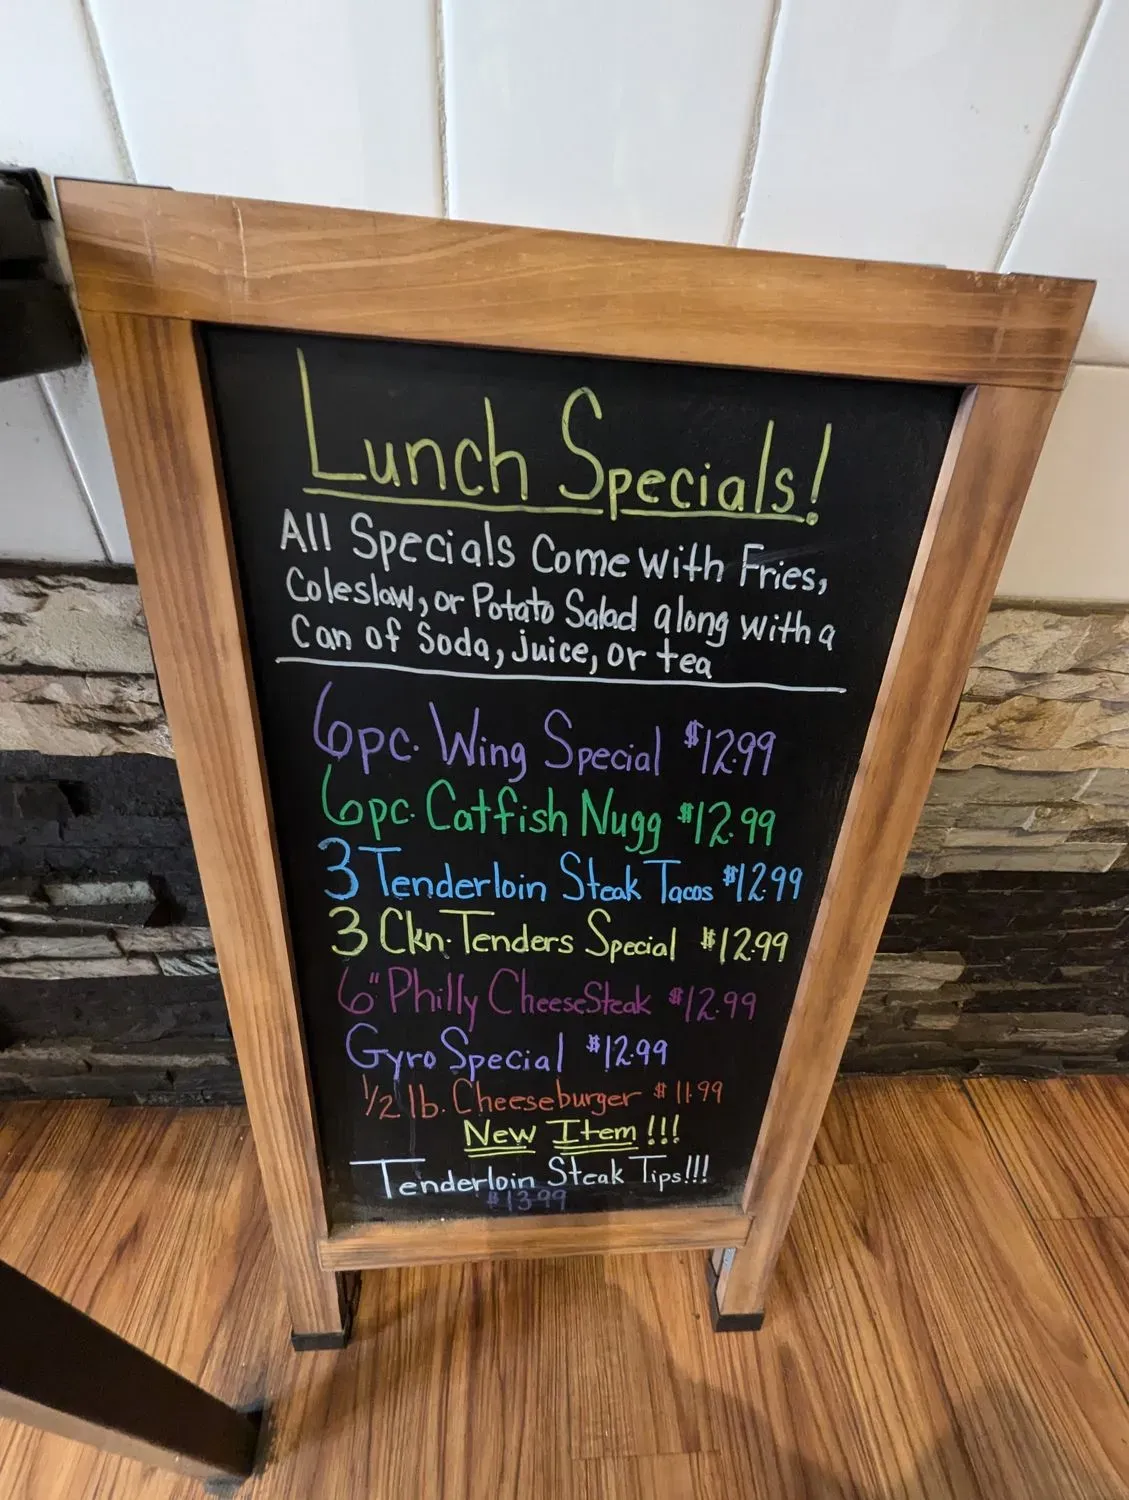 Lunch Specials!
All Specials Come with Fries,
Coleslaw, or Potato Salad along with a
Can of Soda, juice, or tea
6pc. Wing Special $12.99
6pc. Catfish Nugg $12.99
3 Tenderloin Steak Tacos $12.99
3 Ckn. Tenders Special $12.99
6" Philly CheeseSteak $12.99
Gyro Special $12.99
1/2 lb. Cheeseburger $11.99
New Item!!!
Tenderloin Steak Tips!!!
$13.99